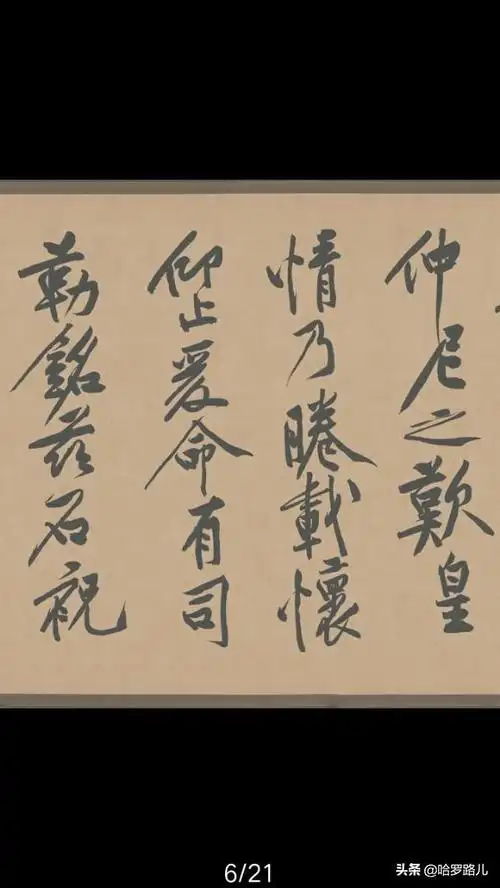 仲尼之歎皇
情乃睠載懷
仰止爰命有司
勒銘茲石祝
6/21
头条 @哈罗路儿